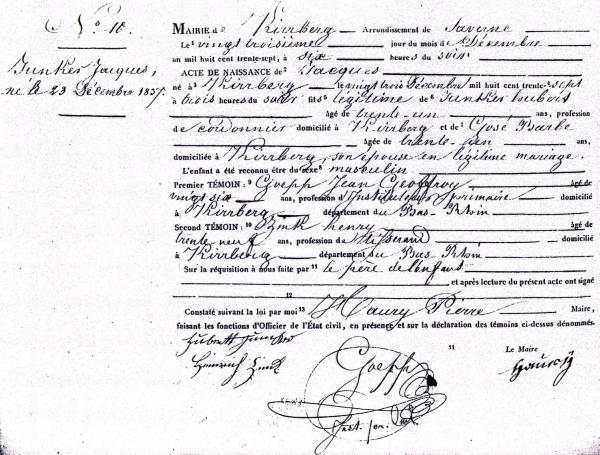 N.º 18.
Junker Jacques,
né le 23 Décembre 1837.
MAIRIE d e Kirrberg Arrondissement de Saverne
Le 1 vingt troisième jour du mois de Décembre
an mil huit cent trente-sept, à six heures du soir
ACTE DE NAISSANCE de 2 Jacques
né à 3 Kirrberg le vingt trois Décembre mil huit cent trente-sept
à trois heures du soir fils 5 légitime de 6 Junker hubert
âgé de trente-un ans, profession
d e cordonnier domicilié à Kirrberg et de 7 Gosé Barbe
âgée de trente-un ans,
domiciliée à Kirrberg, son épouse en légitime mariage.
L'enfant a été reconnu être du sexe 8 masculin
Premier TÉMOIN : 9 Goepp Jean Geoffroy âgé de
vingt six ans, profession d' Instituteur primaire domicilié
à Kirrberg, département du Bas-Rhin
Second TÉMOIN : 10 Zink henry âgé de
trente neuf ans, profession de tisserand domicilié
à Kirrberg département du Bas-Rhin
Sur la réquisition à nous faite par 11 le père de l'enfant
et après lecture du présent acte ont signé
12
Constaté suivant la loi par moi 13 Haury Pierre Maire,
faisant les fonctions d'Officier de l'État civil, en présence et sur la déclaration des témoins ci-dessus dénommés.
14 Le Maire
Heinrich Zink
Goepp
Haury